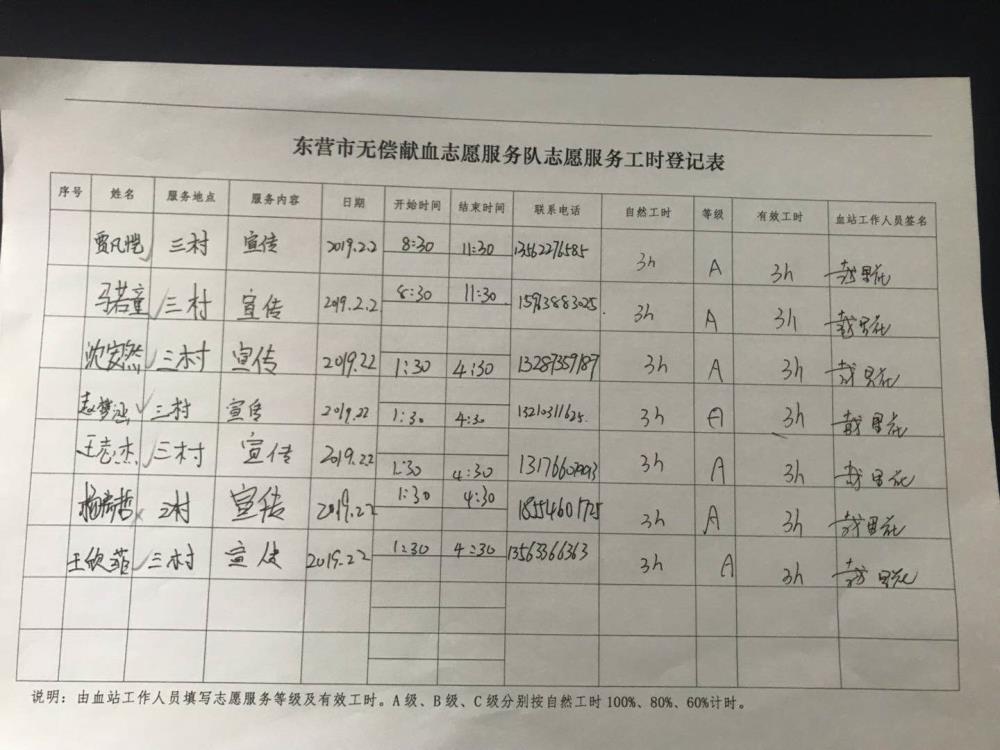 东营市无偿献血志愿服务队志愿服务工时登记表
序号 姓名 服务地点 服务内容 日期 开始时间 结束时间 联系电话 自然工时 等级 有效工时 血站工作人员签名
贾凡恺 三村 宣传 2019.2.2 8:30 11:30 13562276585 3h A 3h
马若童 三村 宣传 2019.2.2 8:30 11:30 3h A 3h
沈安然 三村 宣传 2019.2.2 1:30 4:30 13287359789 3h A 3h
赵梦涵 三村 宣传 2019.2.2 1:30 4:30 3h A 3h
王志杰 三村 宣传 2019.2.2 1:30 4:30 3h A 3h
三村 宣传 2019.2.2 1:30 4:30 18554601725 3h A 3h
王欣菲 三村 宣传 2019.2.2 1:30 4:30 13563366363 3h A 3h
说明：由血站工作人员填写志愿服务等级及有效工时。A级、B级、C级分别按自然工时100%、80%、60%计时。